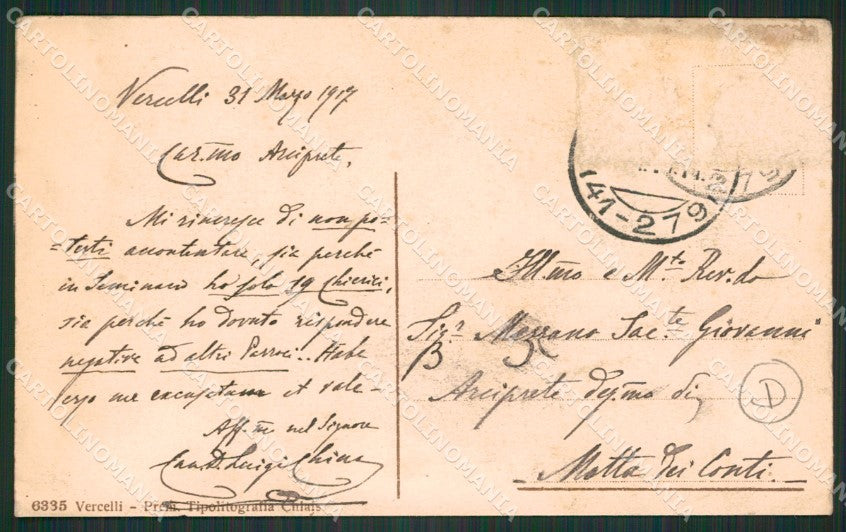 Vercelli 31 Marzo 1917
Car.mo Arciprete,
Mi rincresce di non po-
=terti accontentare, sia perché
in Seminario ho solo 19 Chierici,
sia perché ho dovuto rispondere
negative ad altri Parroci. Habe
ergo me excusatum et vale -
Aff.mo nel Signore
Can. Luigi
6335 Vercelli - Prem. Tipolitografia Chiais
41-279
Ill.mo e M.to Rev.do
Sig.r Massano Sac.te Giovanni
B
Arciprete deg.mo di
D
Motta dei Conti.
CARTOLINOMANIA